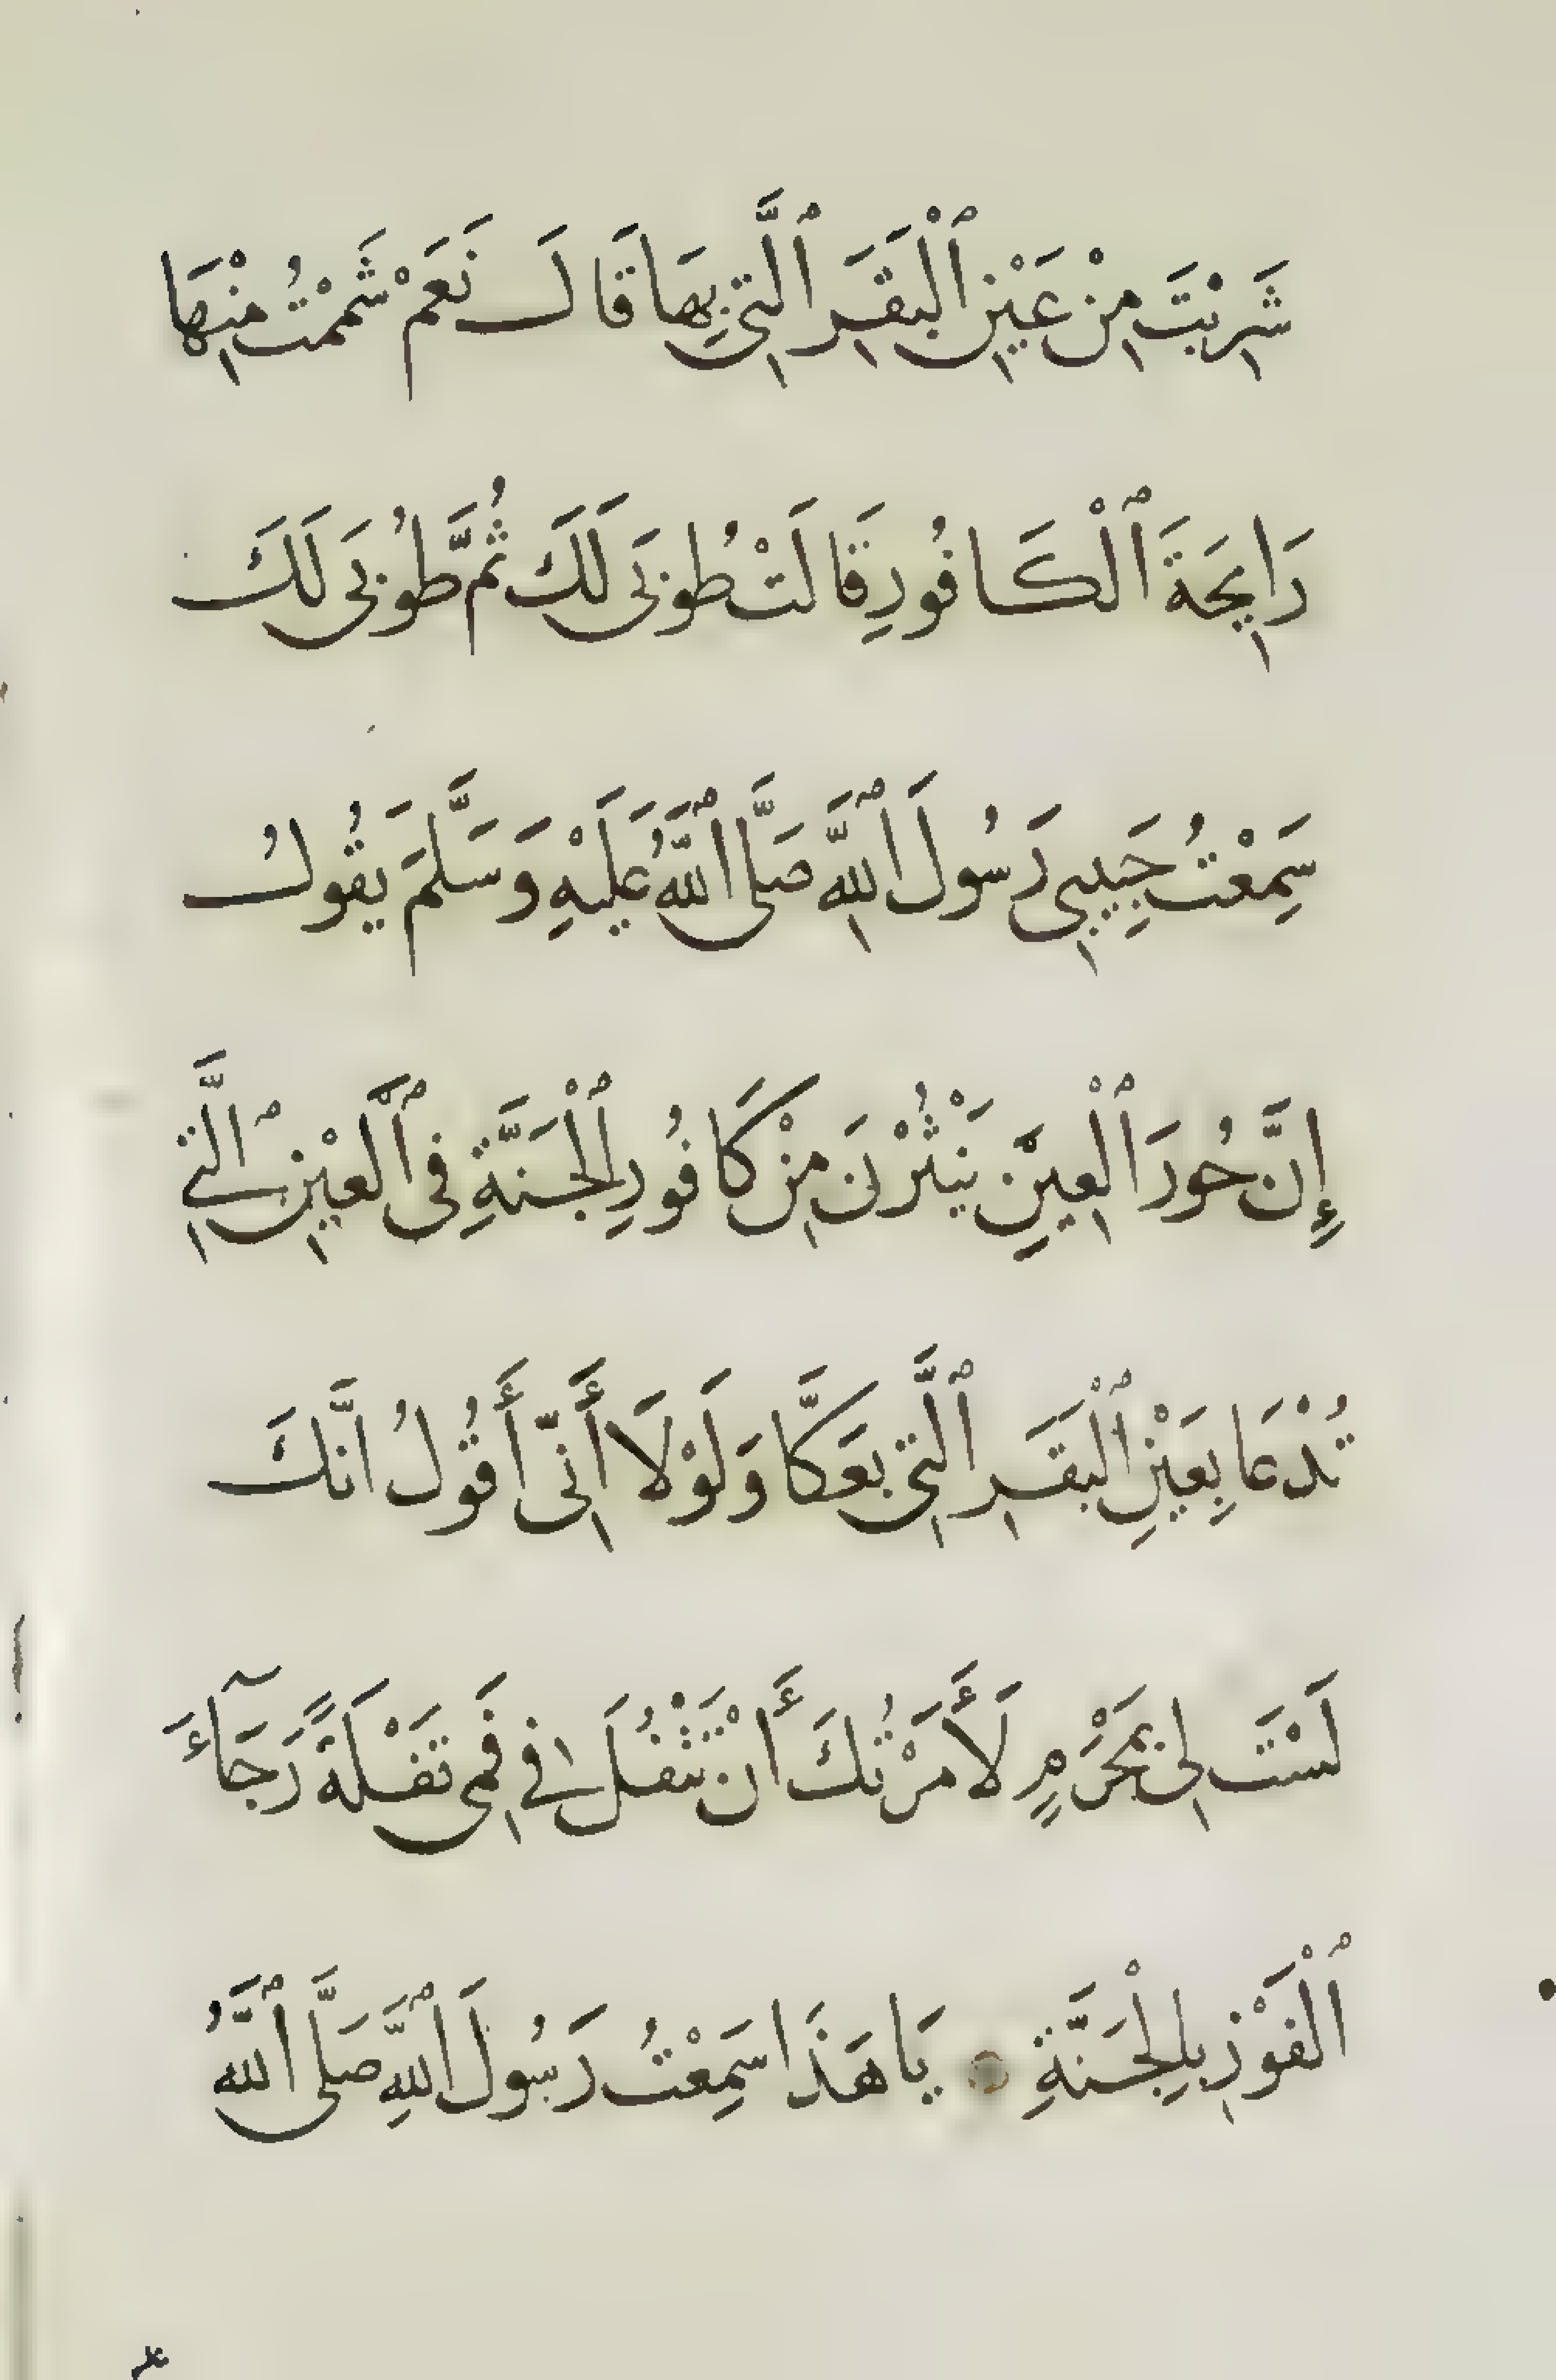 شَرِبْتَ مِنْ عَيْنِ ٱلْبَقَرِ ٱلَّتِي بِهَا قَالَ نَعَمْ شَمَمْتُ مِنْهَا
رَايِحَةَ ٱلْكَافُورِ قَالَتْ طُوبَى لَكَ ثُمَّ طُوبَى لَكَ
سَمِعْتُ حَبِيبِي رَسُولَ ٱللَّهِ صَلَّى ٱللَّهُ عَلَيْهِ وَسَلَّمَ يَقُولُ
إِنَّ حُورَ ٱلْعِينِ يَنْثُرْنَ مِنْ كَافُورِ ٱلْجَنَّةِ فِي ٱلْعَيْنِ ٱلَّتِي
تُدْعَا بِعَيْنِ ٱلْبَقَرِ ٱلَّتِي بَعَكَّا وَلَوْلَا أَنِّي أَقُولُ انَّكَ
لَسْتَ لِي بِمَحْرَمٍ لَأَمَرْتُكَ أَنْ تَتْفُلَ فِي فَمِي تَفْلَةً رَجَآءَ
ٱلْفَوْزِ بِالْجَنَّةِ يَا هَذَا سَمِعْتُ رَسُولَ ٱللَّهِ صَلَّى ٱللَّهُ